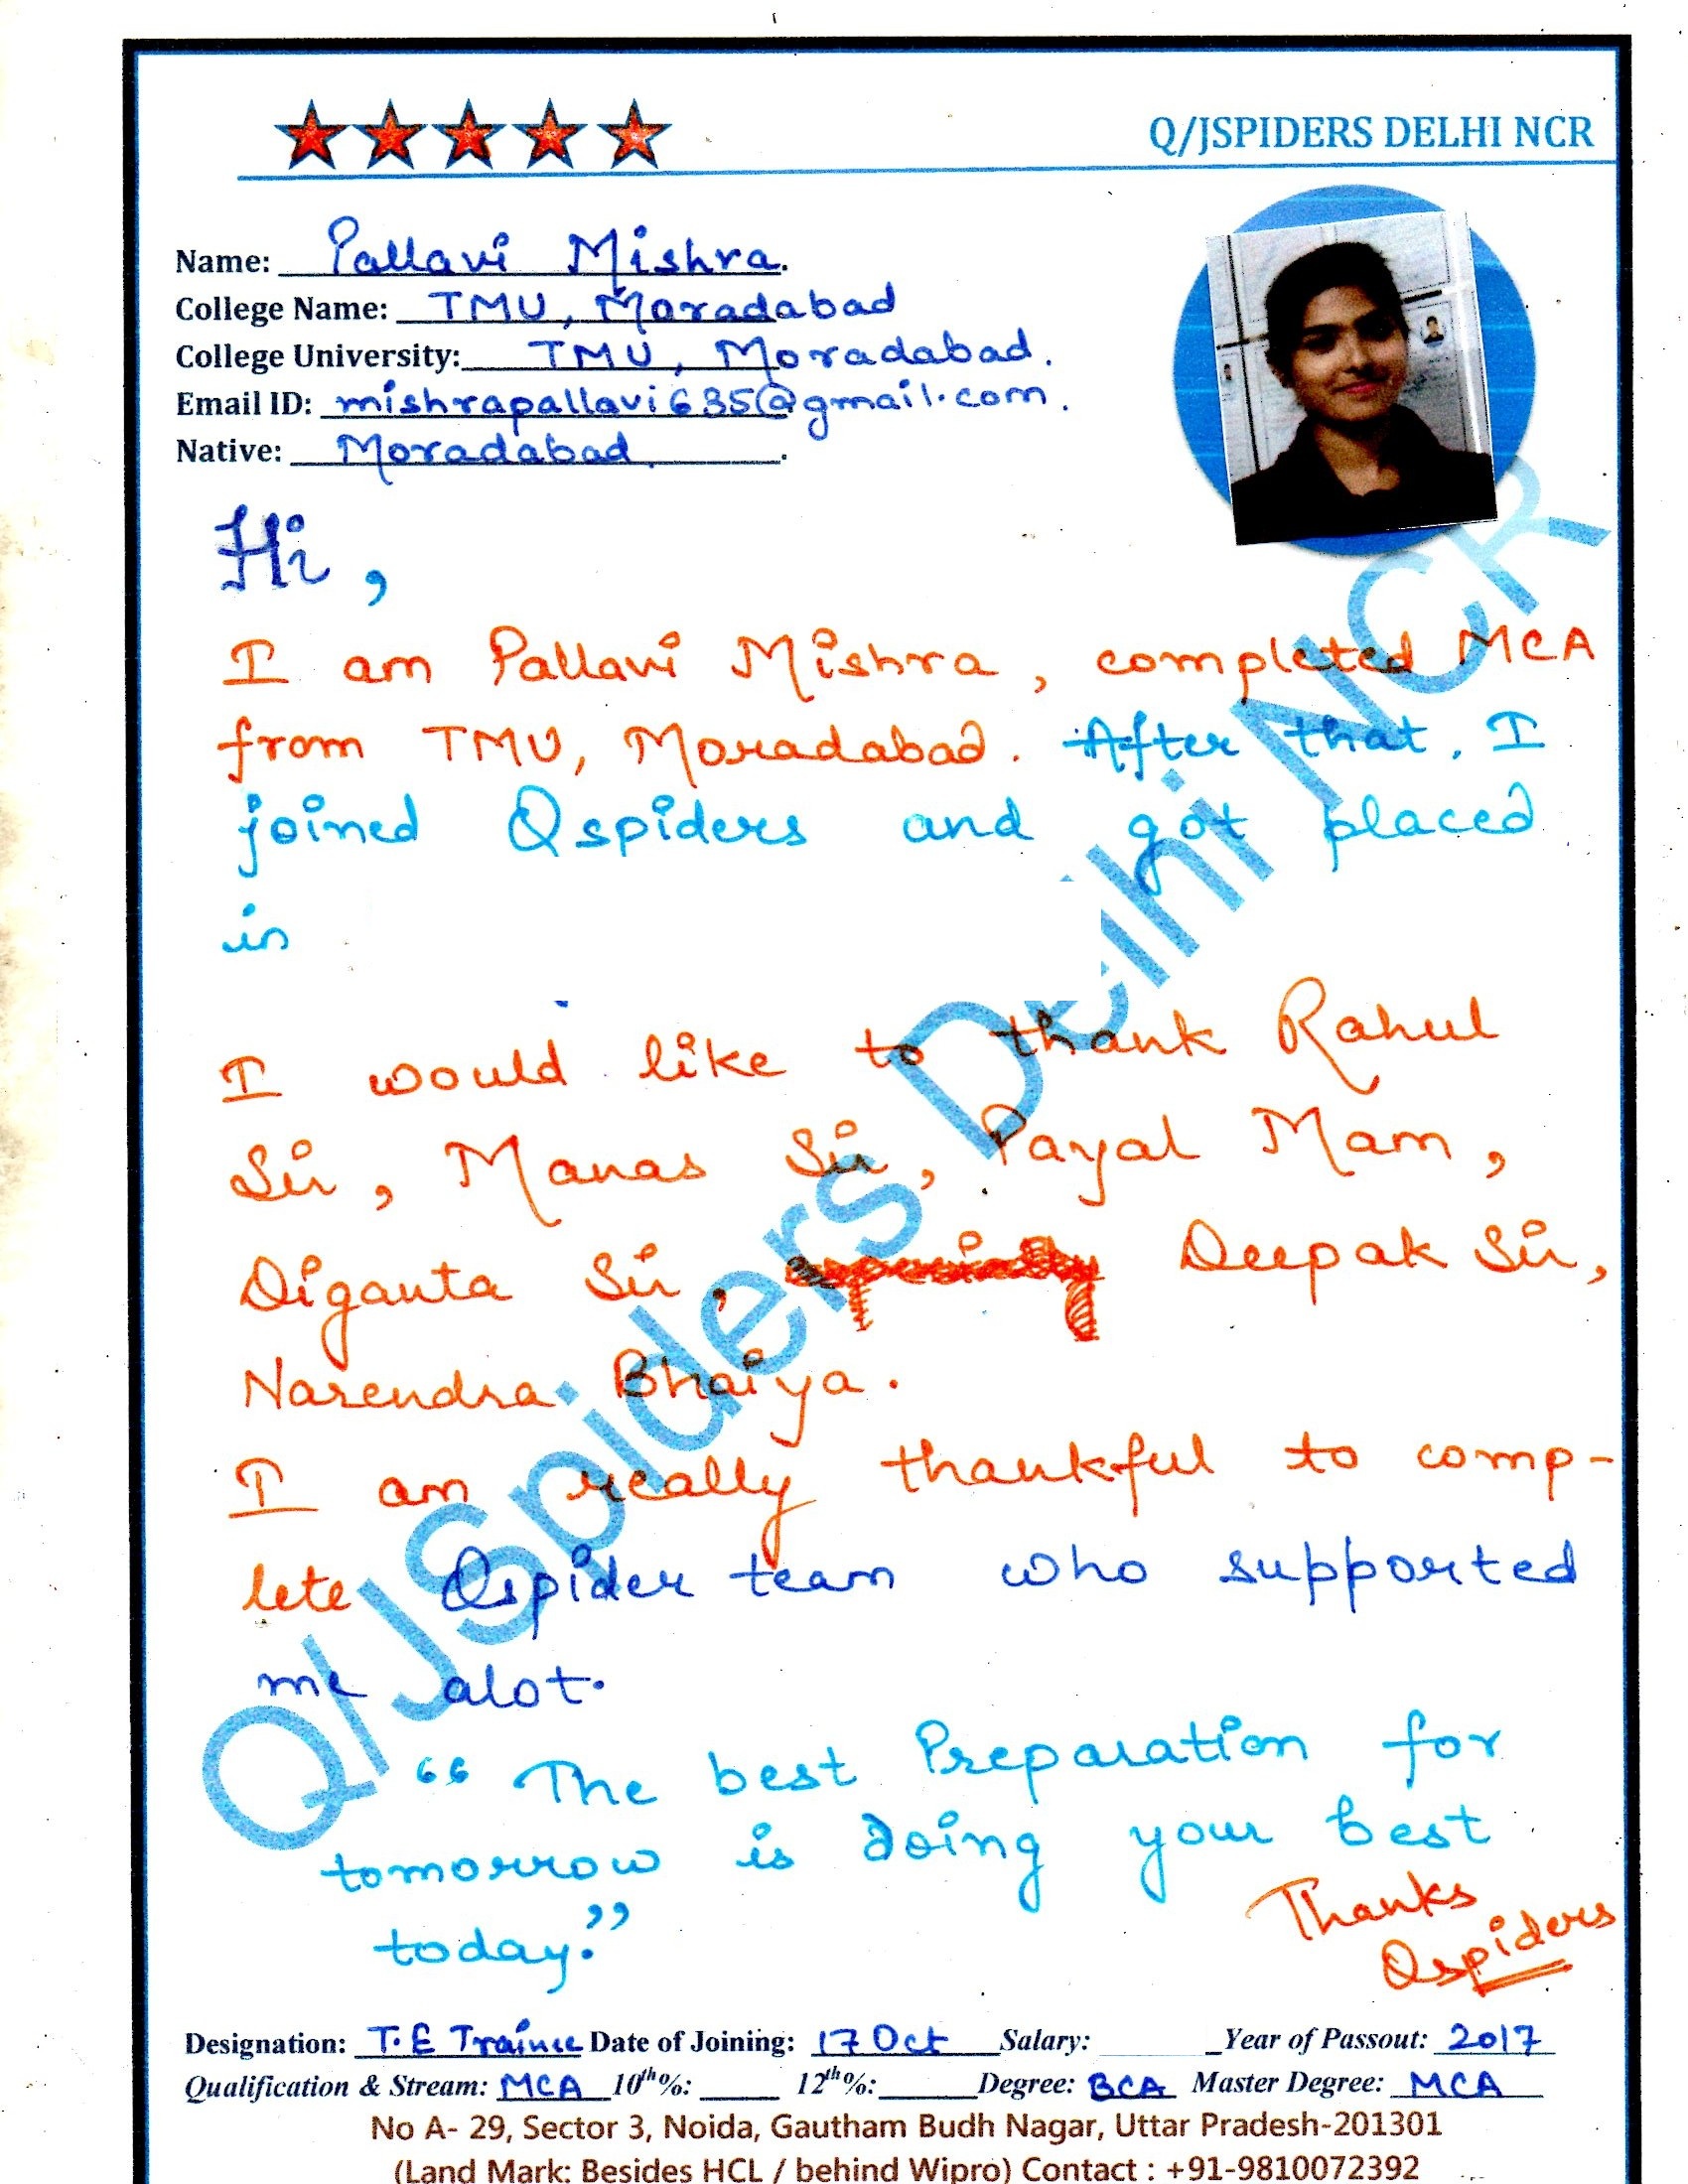 Q/JSPIDERS DELHI NCR
Name: Pallavi Mishra.
College Name: TMU, Moradabad
College University: TMU, Moradabad.
Email ID: mishrapallavi635@gmail.com.
Native: Moradabad.
Hi,
I am Pallavi Mishra, completed MCA
from TMU, Moradabad. After that, I
joined Qspiders and got placed
in
I would like to thank Rahul
Sir, Manas Sir, Payal Mam,
Diganta Sir, Deepak Sir,
Narendra Bhaiya.
I am really thankful to comp-
lete Qspider team who supported
me alot.
“The best Preparation for
tomorrow is doing your best
today.”
Thanks
Qspiders
Designation: T.E Trainee Date of Joining: 17 Oct Salary: Year of Passout: 2017
Qualification & Stream: MCA 10th%: 12th%: Degree: BCA Master Degree: MCA
No A- 29, Sector 3, Noida, Gautham Budh Nagar, Uttar Pradesh-201301
(Land Mark: Besides HCL / behind Wipro) Contact : +91-9810072392
Q/JSpiders Delhi NCR